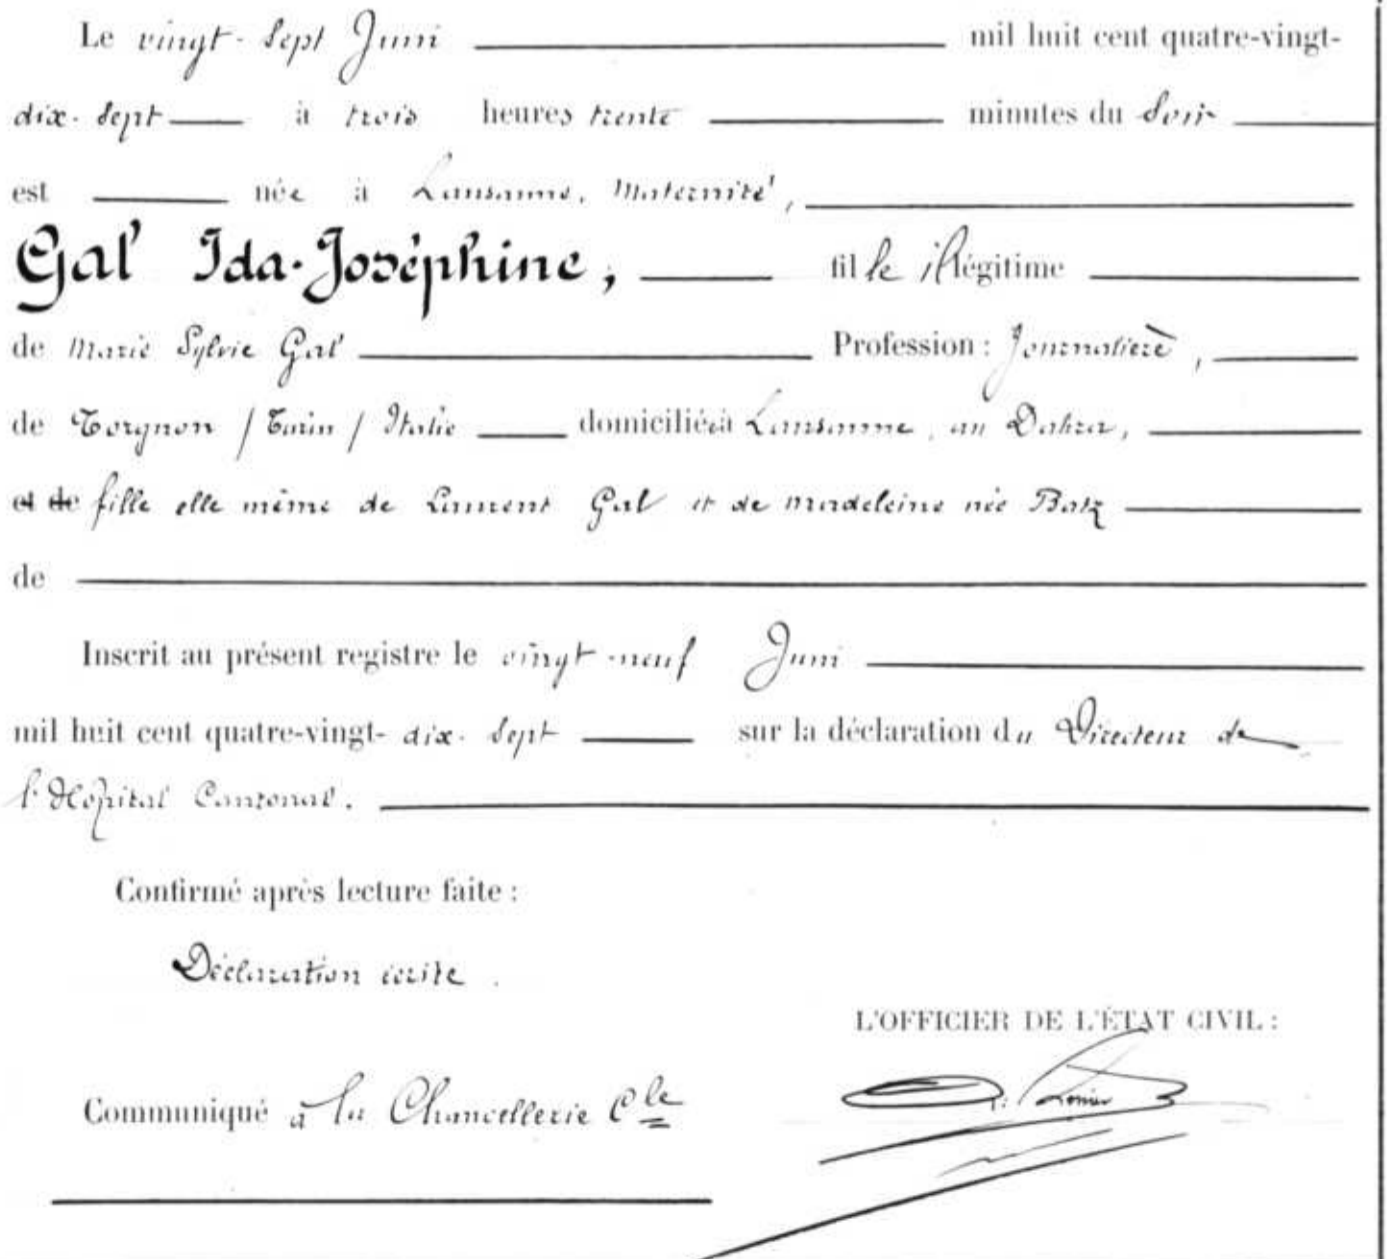 Le vingt-sept Juin mil huit cent quatre-vingt-
dix-sept à trois heures trente minutes du soir
est née à Lausanne, Maternité,
Gal Ida-Joséphine, fille illégitime
de Marie Sylvie Gal Profession : Journalière,
de Torgnon / Turin / Italie domiciliée à Lausanne, au Dahra,
et de fille elle même de Laurent Gal et de Madeleine née Batz
de
Inscrit au présent registre le vingt-neuf Juin
mil huit cent quatre-vingt- dix-sept sur la déclaration du Directeur de
l'Hôpital Cantonal.
Confirmé après lecture faite :
Déclaration écrite.
L'OFFICIER DE L'ÉTAT CIVIL :
Communiqué à la Chancellerie Cle